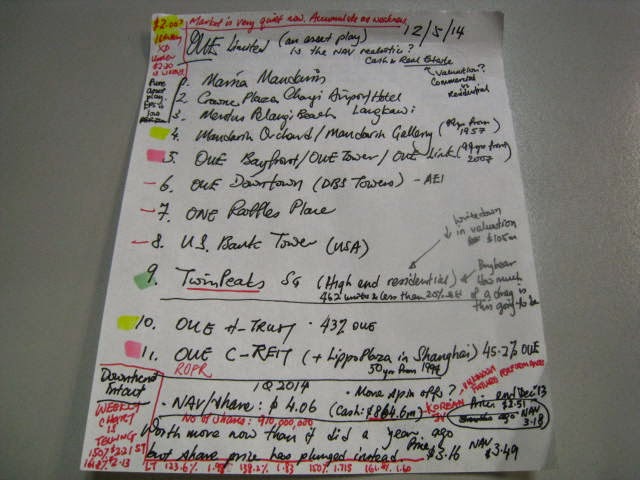 Market is very quiet now. Accumulate on weakness
$2.00?
XD
12/5/14
OUE Limited (an asset play)
Is the NAV realistic?
Cash & Real Estate
Valuation?
Commercial
Residential
Pure
asset
play.
EPS is
low
1. Marina Mandarin
2. Crowne Plaza Changi Airport Hotel
3. Meritus Pelangi Beach Langkawi
4. Mandarin Orchard / Mandarin Gallery (99yrs from 1957)
5. OUE Bayfront / OUE Tower / OUE Link (99yrs from 2007)
6. OUE Downtown (DBS Towers) - AEI
7. ONE Raffles Place
8. U.S. Bank Tower (USA)
Writedown
in valuation
$105m
9. Twin Peaks SG (High end residential)
462 units & less than 20%
Bugbear
How much
of a drag is
this going to be
10. OUE H-TRUST · 43% OUE
11. OUE C-REIT (+ Lippo Plaza in Shanghai) 45.2% OUE
ROPR
50yrs from 1994
Downtrend
Intact
WEEKLY
CHART
IS
TELLING
150% $2.21 ST
161.8% $2.13
1Q 2014
· More spin offs?
UNKNOWN
FUTURE PERFORMANCE
· NAV/share: $4.06 (Cash: $864.6m)
KOREAN
JV
Price end Dec'13
$2.51
NAV
3.18
No of shares: 910,000,000
Worth more now than it did a year ago
but share price has plunged instead.
Price
$3.16
NAV
$3.49
LT 123.6% 1.98 138.2% 1.83 150% 1.715 161.8% 1.60